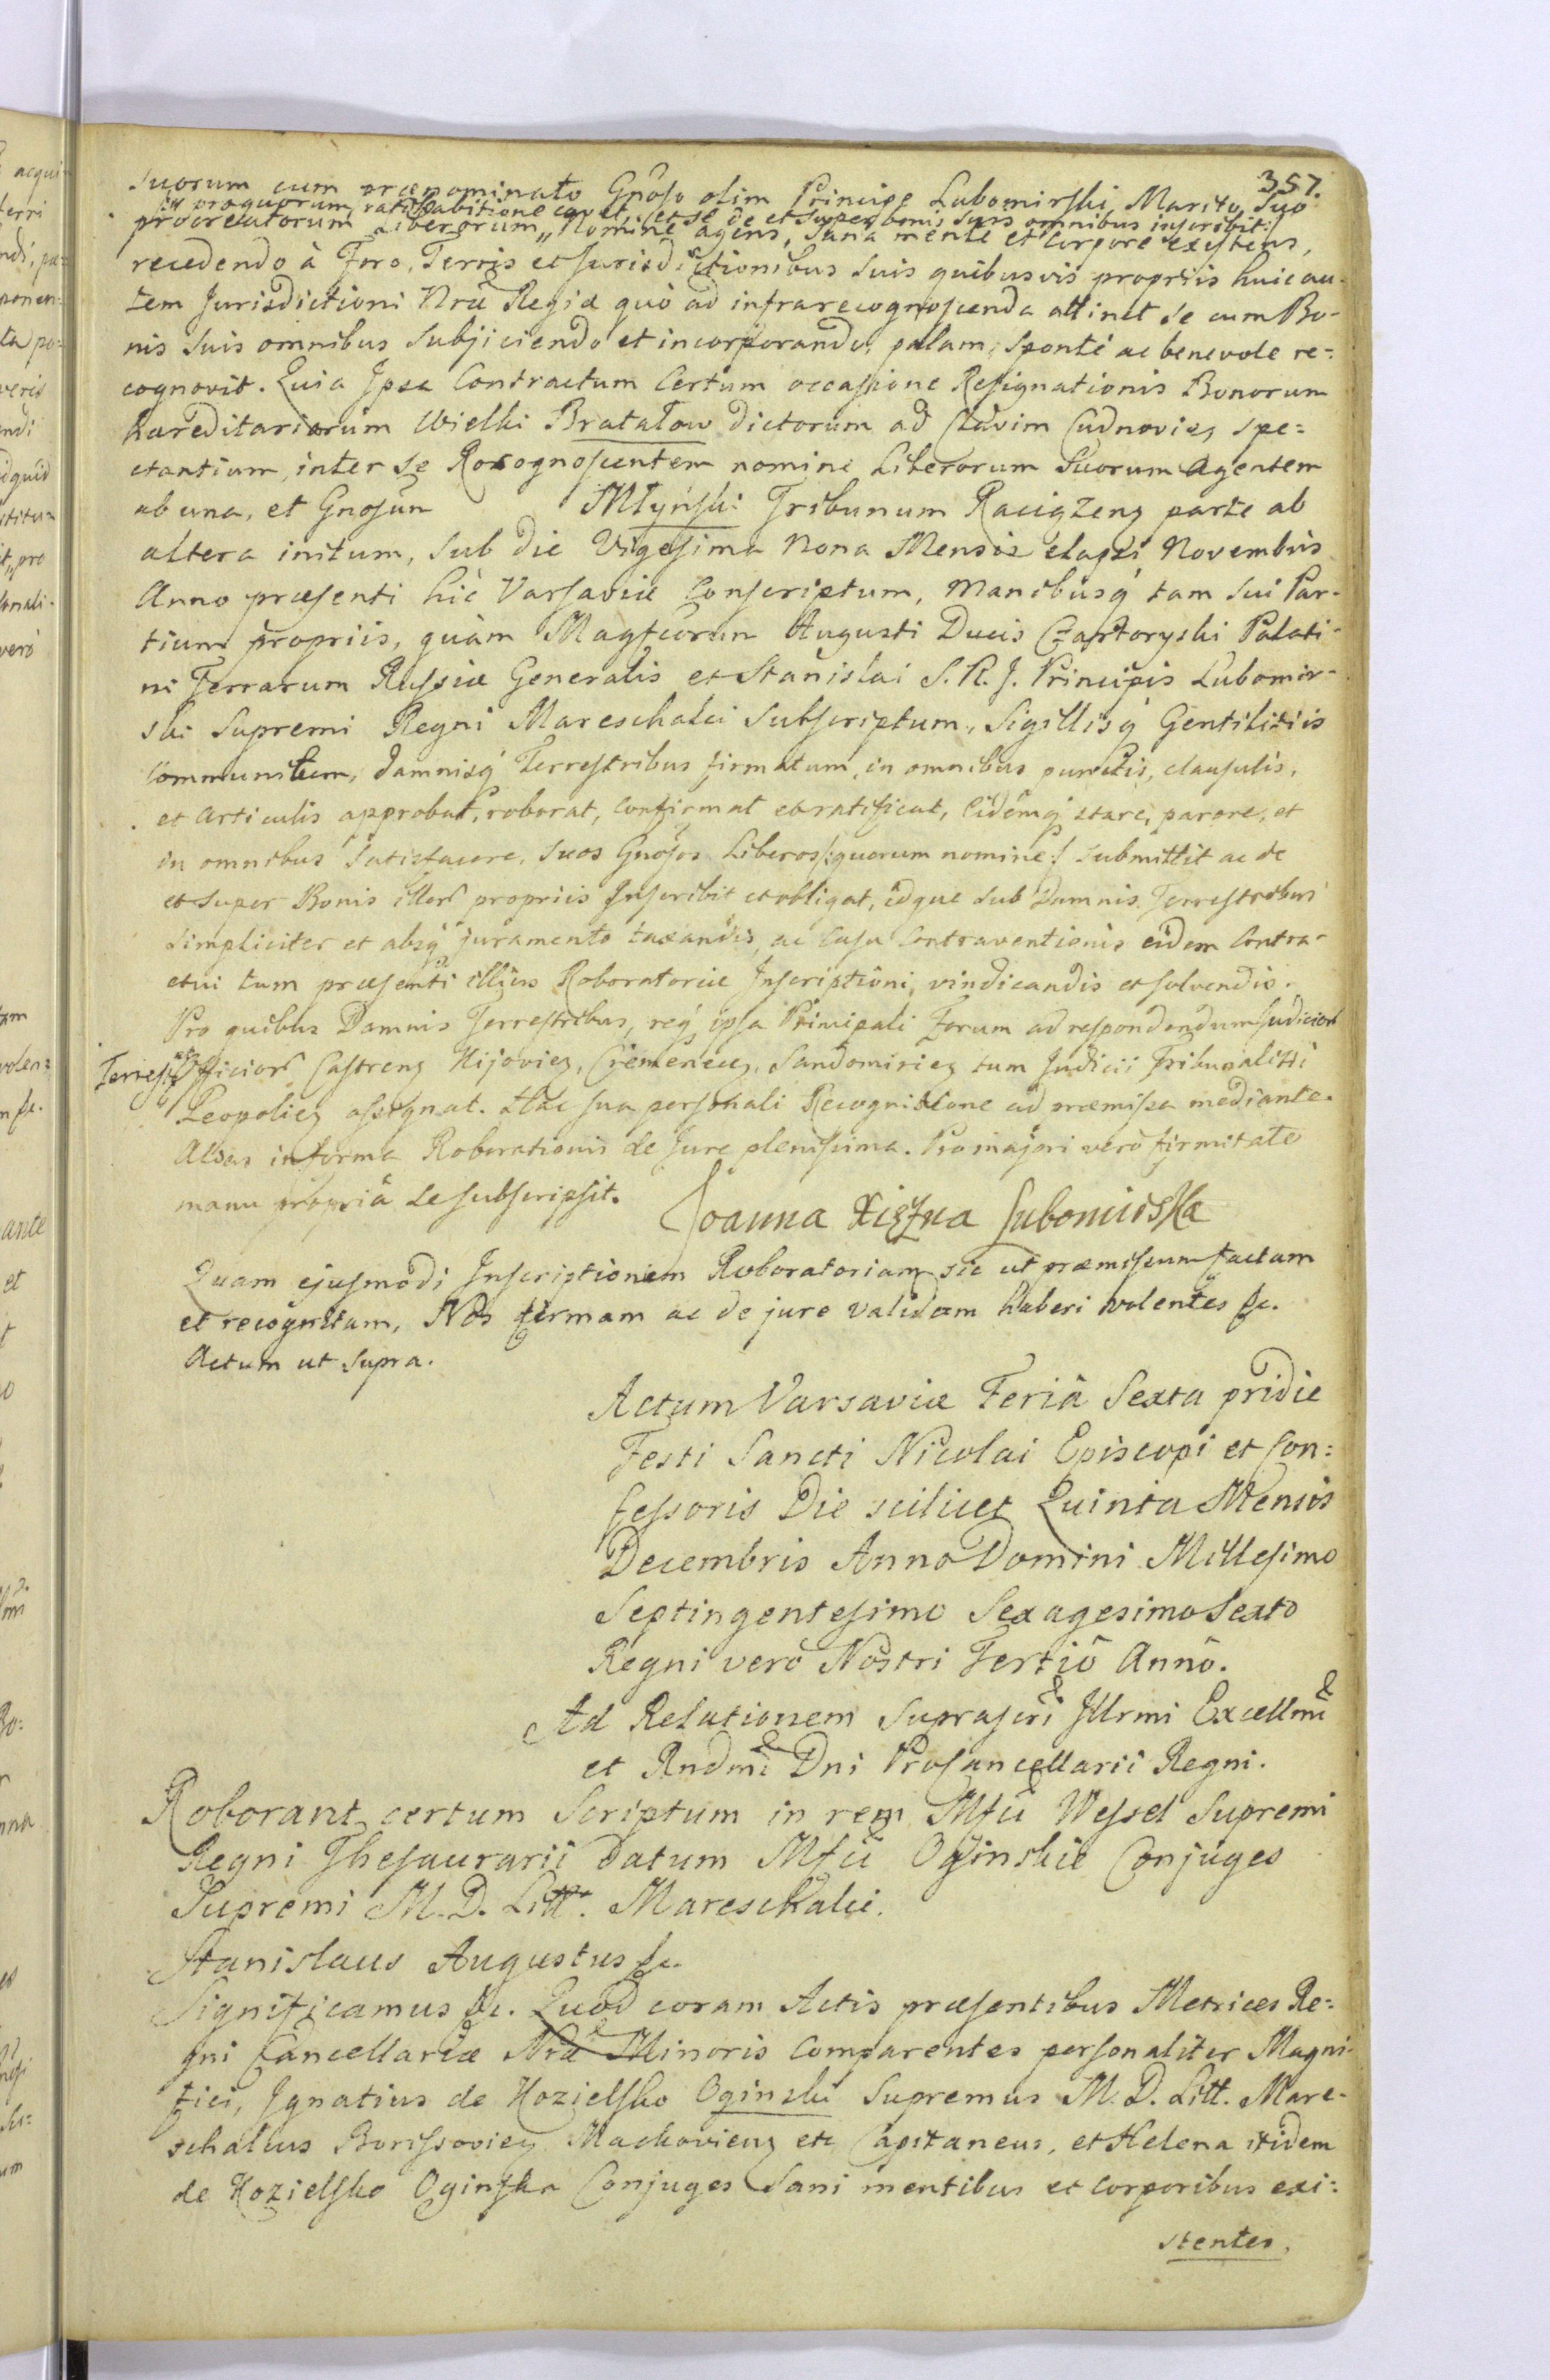 357.
suorum cum prænominato Gnoso olim Principe Lubomirski, Marito Suo
/:pro quorum ratihabitione cavet, et se de et super bonis suis omnibus inscribit:/
procreatorum Liberorum, Nomine agens, Sana mente et Corpore existens,
recedendo à Foro, Terris et Jurisdictionibus Suis quibusvis propriis huic au-
tem Jurisdictioni Nræ Regiæ quò ad infrarecognoscenda attinet se cum Bo-
nis Suis omnibus Subjiciendo et incorporando, palam, Sponté ac benevole re-:
cognovit. Quia Ipsa Contractum Certum occasione Resignationis Bonorum
Hæreditariorum Wielki Bratalow dictorum ad Clavim Cudnovien, spe=
ctantium, inter se Recognoscentem nomine Liberorum Suorum Agentem
ab una, et Gnosun Młyński Tribunum Raciązens parte ab
altera initum, Sub die Vigesima Nona Mensis elapsi Novembris
Anno præsenti hic Varsaviæ Conscriptum, Manibusq́ tam Sui Par-
tium propriis, quàm Magfcorum Augusti Ducis Czartoryski Palati-
ni Terrarum Russiæ Generalis et Stanislai S. R. J. Principis Lubomir-
ski Supremi Regni Mareschalci Subscriptum, Sigillisq́ Gentilitiis
Communitum, damnisq́ Terrestribus firmatum, in omnibus punctis, clausulis,
et Articulis approbat, roborat, Confirmat et ratificat, Eidemq́ stare, parere, et
in omnibus Satisfacere, Suos Gnosos Liberos /:quorum nomine:/ Submittit ac de
et Super Bonis illor propriis Inscribit et obligat, idque Sub Damnis Terrestribus
Simpliciter et absq́ juramento taxandis, ac Casu Contraventionis eidem Contra-
ctui tum præsenti illius Roboratoriæ Inscriptioni, vindicandis et solvendis.
Pro quibus Damnis Terrestribus, req́ ipsa Principali Forum ad respondendum Judicior
Terrestr Officior Castrens Kijovien, Cremenecen, Sandomirien tum Judicii Tribunalitii
Leopolien assignat. Hac sua personali Recognitione ad præmissa mediante.
Alias in forma Roborationis de Jure plenissima. Pro majori verò firmitate
manu propriâ se subscripsit. Joanna Xiężna Lubomirska
Quam ejusmodi Inscriptionem Roboratoriam sic ut præmissum factam
et recognitam, Nos firmam ac de jure validam haberi volentes &c.
Actum ut Supra.
Actum Varsaviæ Feriâ Sexta pridie
Festi Sancti Nicolai Episcopi et Con=
fessoris Die scilicet Quinta Mensis
Decembris Anno Domini Millesimo
Septingentesimo Sexagesimo Sexto
Regni verò Nostri Tertiô Annô.
Ad Relationem Suprascri Illrmi Excellmi
et Rndmi Dni Procancellarii Regni.
Roborant certum Scriptum in rem Mfci Wessel Supremi
Regni Thesaurarii datum Mfci Oginskie Conjuges
Supremi M. D. Litt. Mareschalci.
Stanislaus Augustus &c.
Significamus &c. Quod coram Actis præsentibus Metrices Re=
gni Cancellariæ Nræ Minoris Comparentes personaliter Magni-
fici, Ignatius de Kozielsko Oginski Supremus M. D. Litt. Mare-
schalcus Borissovien Mackovienz etc Capitaneus, et Helena itidem
de Kozielsko Oginska Conjuges Sani mentibus et corporibus exi=
stentes,